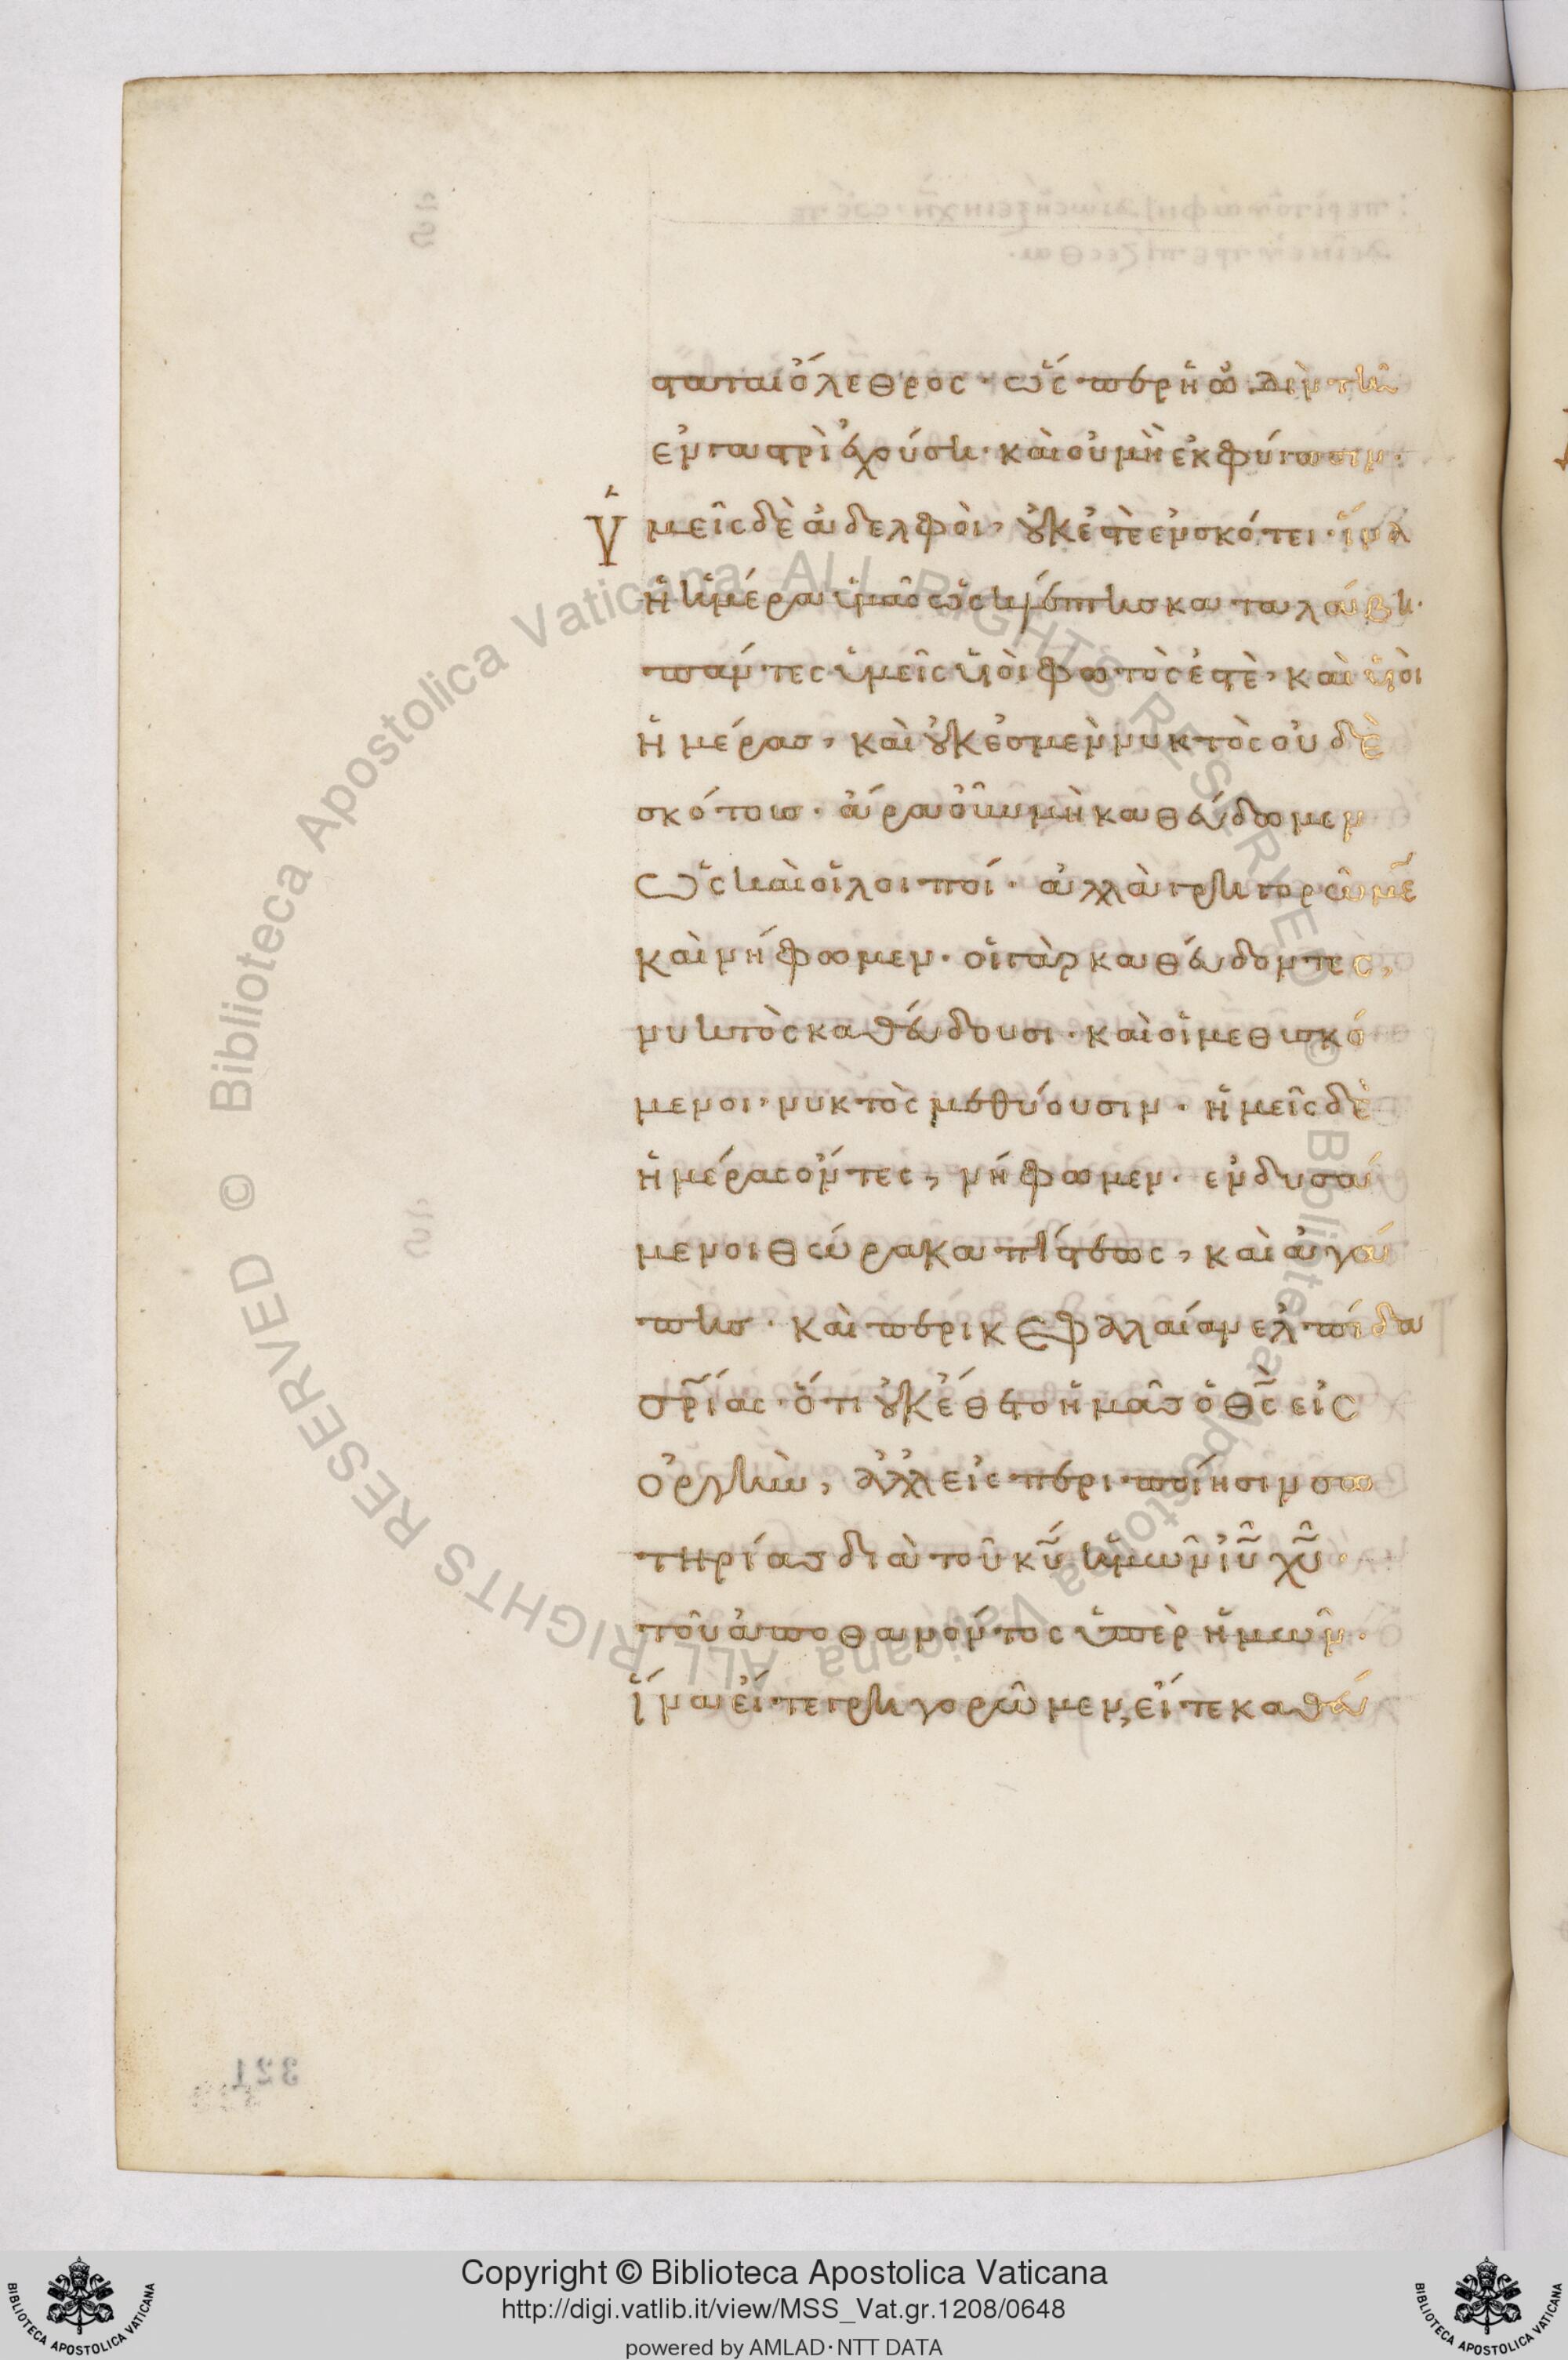 σταται ὄλεθρος· ὥσπερ ἡ ὠδὶν τῆ
ἐν γαστρὶ ἐχούση· καὶ οὐ μὴ ἐκφύγωσιν·
Ὑμεῖς δὲ ἀδελφοὶ, οὐκ ἐστὲ ἐν σκότει· ἵνα
ἡ ἡμέρα ὑμᾶς ὡς κλέπτης καταλάβη·
πάντες ὑμεῖς υἱοὶ φωτὸς ἐστὲ, καὶ υἱοὶ
ἡμέρας, καὶ οὐκ ἐσμὲν νυκτὸς οὐδὲ
σκότους· ἄρα οὖν μὴ καθεύδωμεν
ὡς καὶ οἱ λοιποί· ἀλλὰ γρηγορῶμε
καὶ νήφωμεν· οἱ γὰρ καθεύδοντες,
νυκτὸς καθεύδουσι· καὶ οἱ μεθυσκό
μενοι, νυκτὸς μεθύουσιν· ἡμεῖς δὲ
ἡμέρας ὄντες, νήφωμεν· ἐνδυσά
μενοι θώρακα πίστεως, καὶ ἀγά
πης· καὶ περικεφαλαίαν ἐλπίδα
σρίας· ὅτι οὐκ ἔθετο ἡμᾶς ὁ θς εἰς
ὀργὴν, ἀλλ' εἰς περιποίησιν σω
τηρίας διὰ τοῦ κυ ἡμῶν ιυ χυ·
τοῦ ἀποθανόντος ὑπὲρ ἡμῶν·
ἵνα εἴτε γρηγορῶμεν, εἴτε καθεύ
321
© Biblioteca Apostolica Vaticana ALL RIGHTS RESERVED
© Biblioteca Apostolica Vaticana ALL RIGHTS RESERVED
Copyright © Biblioteca Apostolica Vaticana
http://digi.vatlib.it/view/MSS_Vat.gr.1208/0648
powered by AMLAD·NTT DATA
BIBLIOTECA APOSTOLICA VATICANA
BIBLIOTECA APOSTOLICA VATICANA